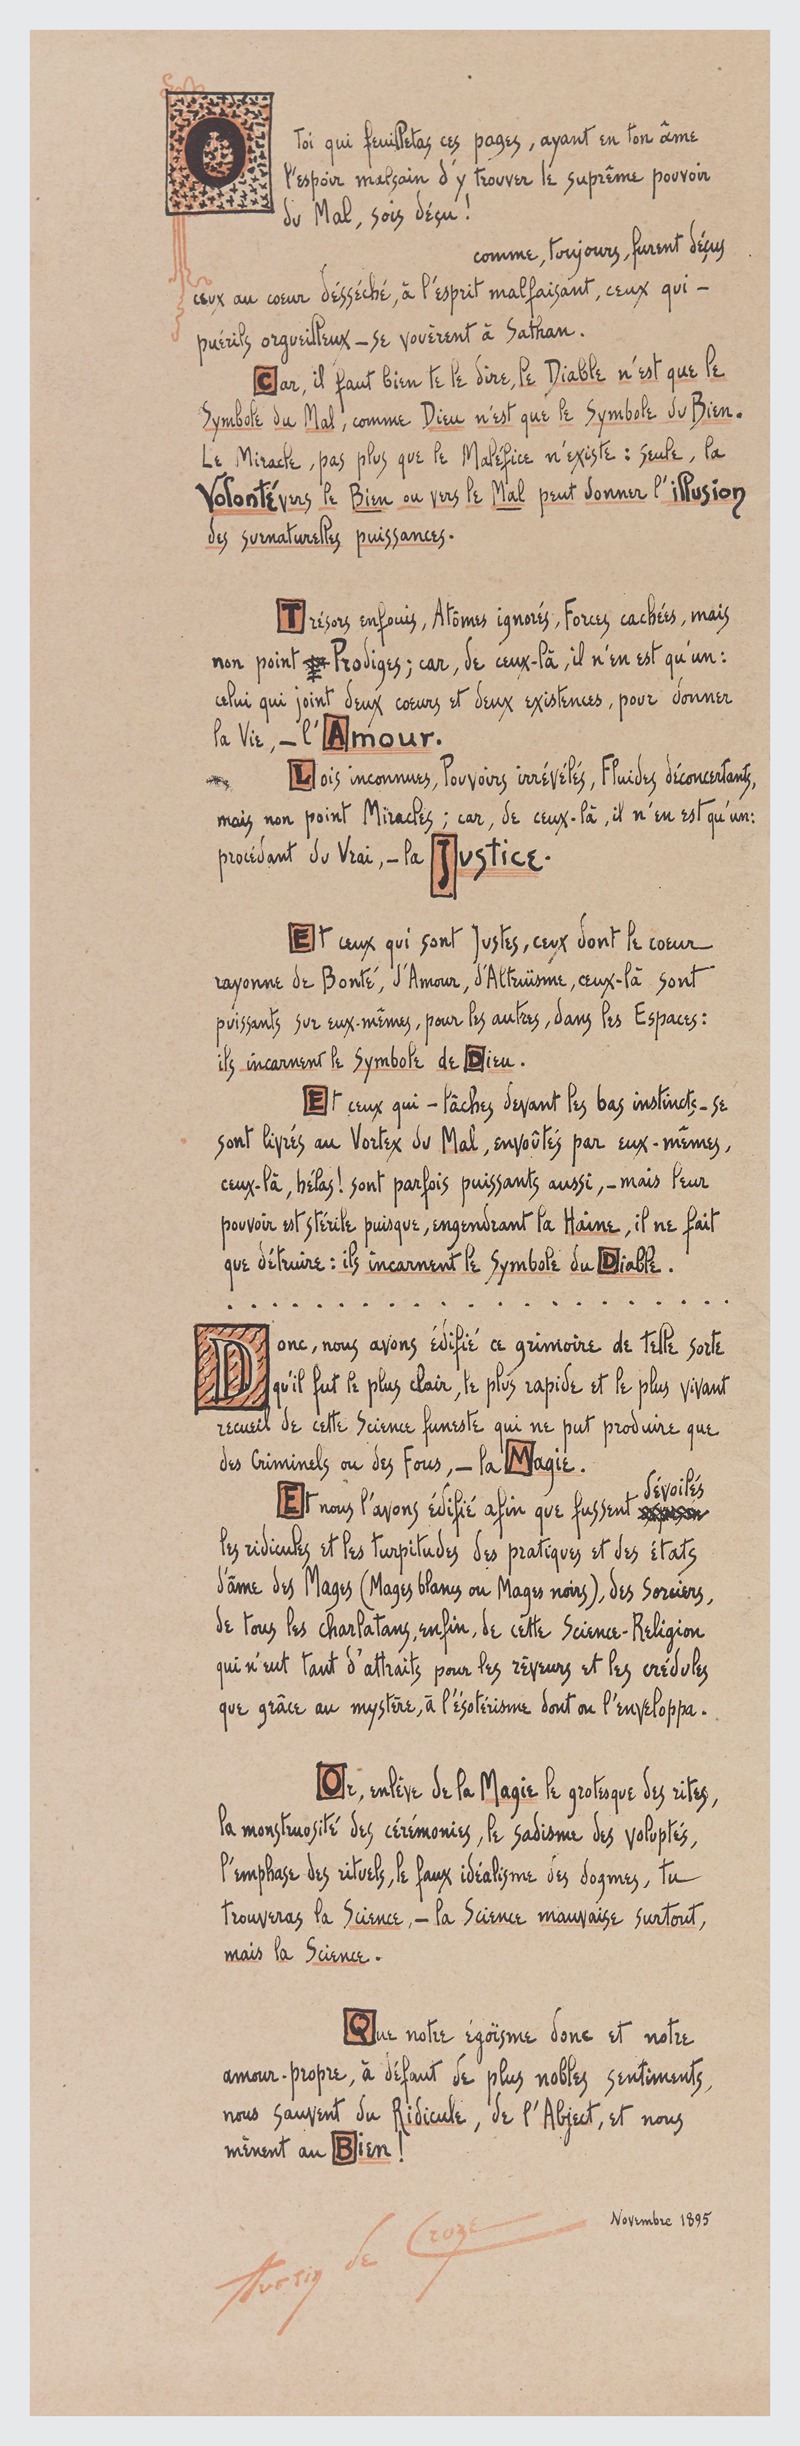 O Toi qui feuilletas ces pages, ayant en ton âme
l'espoir malsain d'y trouver le suprême pouvoir
du Mal, sois déçu !
comme, toujours, furent déçus
ceux au cœur désséché, à l'esprit malfaisant, ceux qui –
puérils orgueilleux – se vouèrent à Sathan.
Car, il faut bien te le dire, le Diable n'est que le
Symbole du Mal, comme Dieu n'est que le Symbole du Bien.
Le Miracle, pas plus que le Maléfice n'existe : seule, la
Volonté vers le Bien ou vers le Mal peut donner l'illusion
des surnaturelles puissances.
Trésors enfouis, Atômes ignorés, Forces cachées, mais
non point Prodiges ; car, de ceux-là, il n'en est qu'un :
celui qui joint deux cœurs et deux existences, pour donner
la Vie, – l'Amour.
Lois inconnues, Pouvoirs irrévélés, Fluides déconcertants,
mais non point Miracles ; car, de ceux-là, il n'en est qu'un :
procédant du Vrai, – la Justice.
Et ceux qui sont Justes, ceux dont le cœur
rayonne de Bonté, d'Amour, d'Altruïsme, ceux-là sont
puissants sur eux-mêmes, pour les autres, dans les Espaces :
ils incarnent le Symbole de Dieu.
Et ceux qui – lâches devant les bas instincts – se
sont livrés au Vortex du Mal, envoûtés par eux-mêmes,
ceux-là, hélas ! sont parfois puissants aussi, – mais leur
pouvoir est stérile puisque, engendrant la Haine, il ne fait
que détruire : ils incarnent le Symbole du Diable.
. . . . . . . . . . . . . . . . . . . . . .
Donc, nous avons édifié ce grimoire de telle sorte
qu'il fut le plus clair, le plus rapide et le plus vivant
recueil de cette Science funeste qui ne put produire que
des Criminels ou des Fous, – la Magie.
Et nous l'avons édifié afin que fussent dévoilés
les ridicules et les turpitudes des pratiques et des états
d'âme des Mages (Mages blancs ou Mages noirs), des Sorciers,
de tous les charlatans, enfin, de cette Science-Religion
qui n'eut tant d'attraits pour les rêveurs et les crédules
que grâce au mystère, à l'ésotérisme dont on l'enveloppa.
Or, enlève de la Magie le grotesque des rites,
la monstruosité des cérémonies, le sadisme des voluptés,
l'emphase des rituels, le faux idéalisme des dogmes, tu
trouveras la Science, – la Science mauvaise surtout,
mais la Science.
Que notre égoïsme donc et notre
amour-propre, à défaut de plus nobles sentiments,
nous sauvent du Ridicule, de l'Abject, et nous
mènent au Bien !
Novembre 1895
Austin de Croze